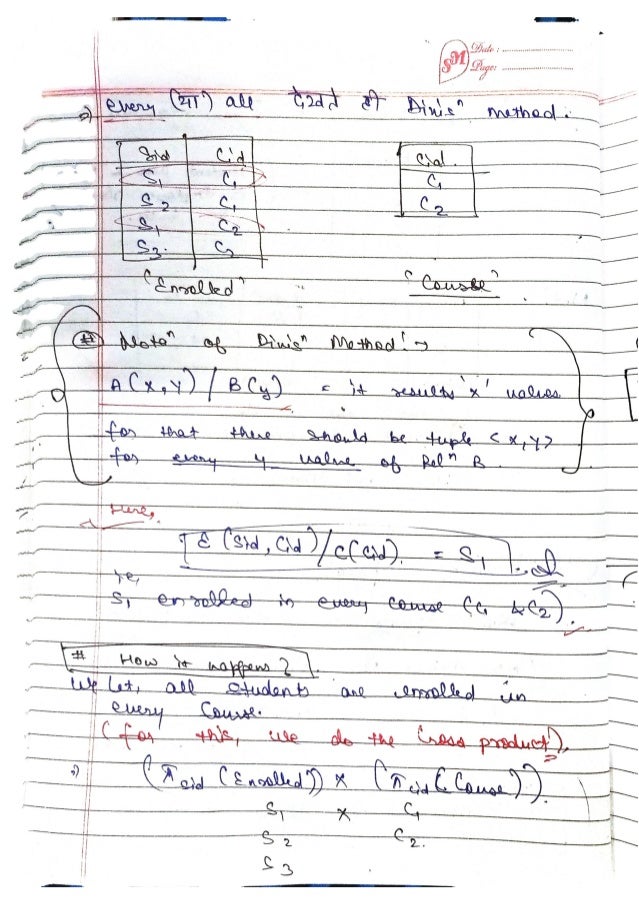 SM Date :
Page:
⇒ every (या) all देखते ही Divisⁿ method.
Sid Cid
S1 C1
S2 C1
S1 C2
S3. C2
"Enrolled"
Cid.
C1
C2
"Course"
# Notaⁿ of Divisⁿ Method:→
A(x,y) / B(y) = it results 'x' values
for that there should be tuple <x,y>
for every y value of Relⁿ B.
Here,
E (Sid, Cid) / C(Cid). = S1
i.e,
S1 enrolled in every course (C1 & C2).
# How it happens?
We Let, all students are enrolled in
every Course.
(for this, we do the Cross product),
⇒ (π sid (Enrolled)) × (π cid (Course)).
S1 × C1
S2 C2.
S3